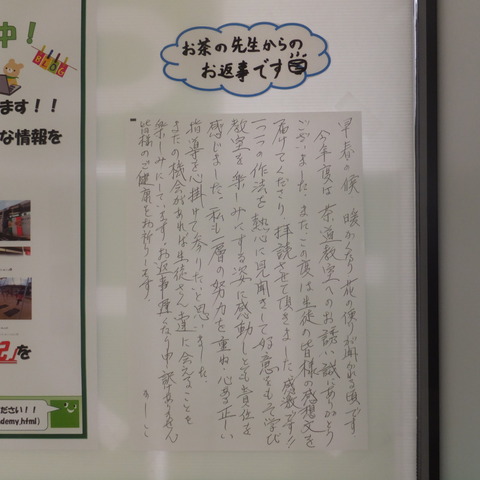 中！
BLOG
ます！！
な情報を
記」を
ださい！！
demy.html)
お茶の先生からの
お返事です
早春の候、暖かくなり花の便りが聞かれる頃です
今年度は茶道教室へのお誘い誠にありがとう
ございました。またこの度は生徒の皆様の感想文を
届けてくださり、拝読させて頂きました。感激です!!
一つ一つの作法を熱心に見聞きして好意をもって学び
教室を楽しみにする姿に感動しとても責任を
感じました。私も一層の努力を重ね、心よ正しい
指導を心掛けて参りたいと思いました。
またの機会があれば生徒さん達に会えることを
楽しみにしています。お返事遅くなり申し訳ありません
皆様のご健康をお祈りします。
かしこ